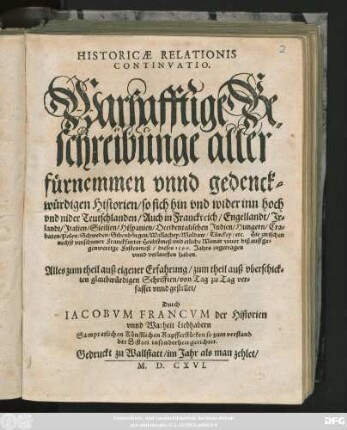 2
HISTORICÆ RELATIONIS
CONTINVATIO.
Warhafftige Be-
schreibunge aller
fürnemmen vnnd gedenck-
würdigen Historien/ so sich hin vnd wider inn hoch
vnd nider Teutschlanden/ Auch in Franckreich/ Engellandt/ Ir-
landt/ Italien/ Sicilien/ Hispanien/ Occidentalischen Indien/ Hungern/ Cra-
baten/ Polen/ Schweden/ Siebenbürgen/ Wallachey/ Moldaw/ Türckey/ etc. hie zwischen
nechst verschienen Franckfurter Herbstmeß vnd etliche Monat zuvor biß auff ge-
genwertige Fastenmeß/ dieses Jahrs zugetragen
vnnd verlauffen haben.
Alles zum theil auß eigener Erfahrung/ zum theil auß vberschick-
ten glaubwürdigen Schrifften/ von Tag zu Tag ver-
fasset vnnd gestellet/
Durch
IACOBVM FRANCVM der Historien
vnnd Warheit liebhabern
Sampt etlichen Künstlichen Kupfferstücken so zum verstand
der Histori insonderheit gerichtet.
Gedruckt zu Wallstatt/ im Jahr als man zehlet/
M. D. CXVI.